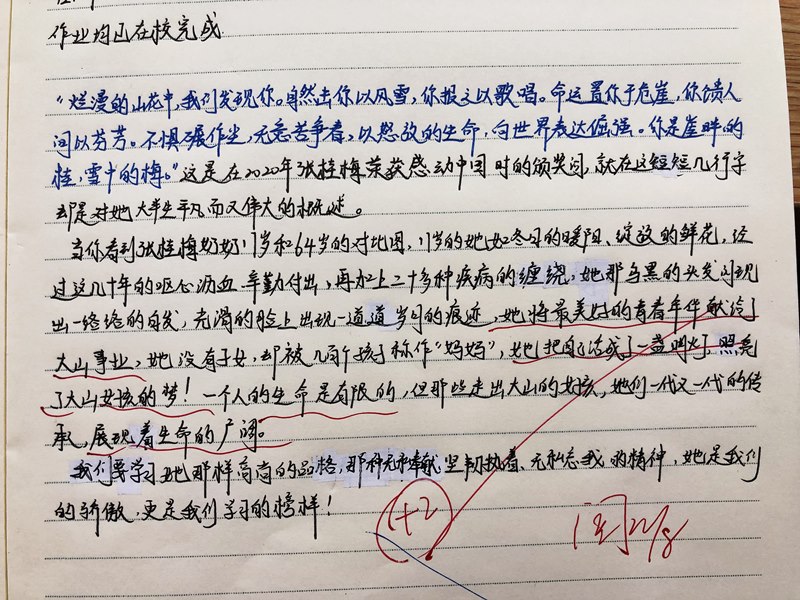 作业均已在校完成
“烂漫的山花中,我们发现你。自然击你以风雪,你报之以歌唱。命运置你于危崖,你馈人
间以芬芳。不惧碾作尘,无意苦争春,以怒放的生命,向世界表达倔强。你是崖畔的
桂,雪中的梅。”这是在2020年张桂梅荣获感动中国时的颁奖词,就在这短短几行字
却是对她大半生平凡而又伟大的概述。
当你看到张桂梅奶奶17岁和64岁的对比图,17岁的她如冬日的暖阳、绽放的鲜花,经
过这几十年的呕心沥血、辛勤付出,再加上二十多种疾病的缠绕,她那乌黑的头发间现
出一络络的白发,光滑的脸上出现一道道岁月的痕迹,她将最美好的青春年华献给了
大山事业,她没有子女,却被几百个孩子称作“妈妈”,她把自己活成了一盏明灯,照亮
了大山女孩的梦!一个人的生命是有限的,但那些走出大山的女孩,她们一代又一代的传
承,展现着生命的广阔。
我们要学习她那样高尚的品格,那种无私奉献、坚韧执着、无私忘我的精神,她是我们
的骄傲,更是我们学习的榜样!
1+2
阅 11/8